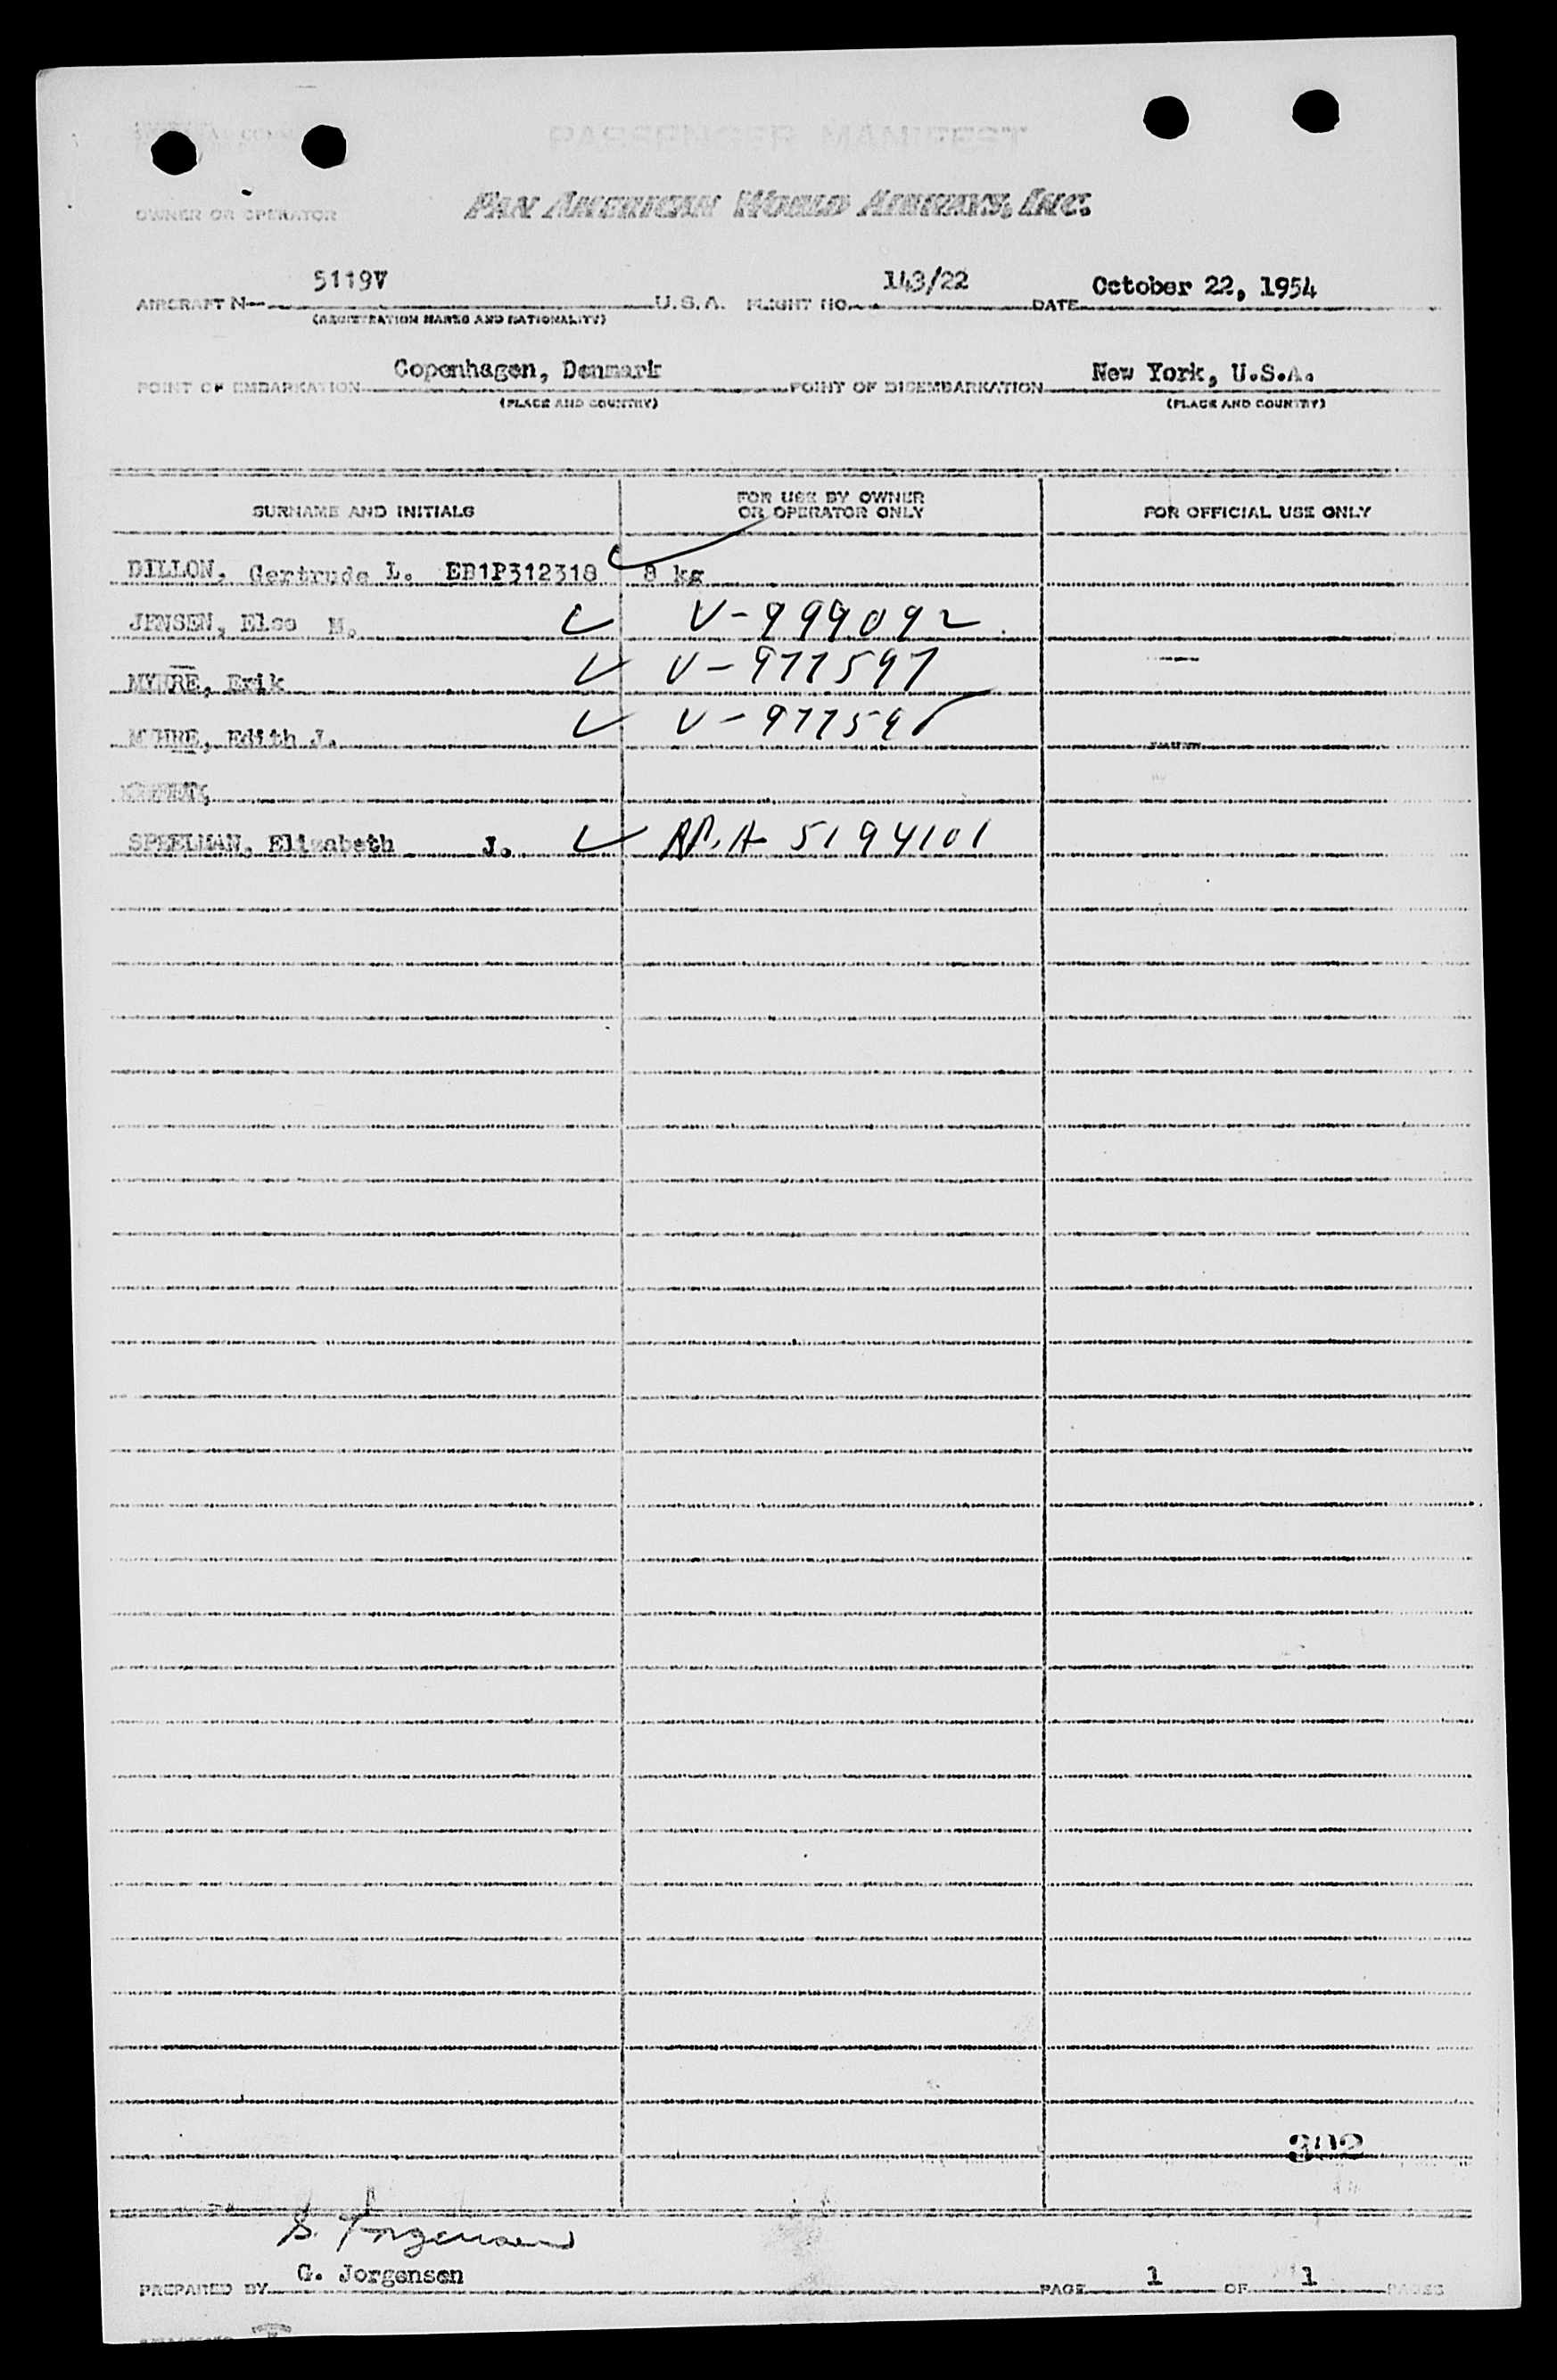 PASSENGER MANIFEST
OWNER OR OPERATOR PAN AMERICAN WORLD AIRWAYS, INC.
AIRCRAFT N- 5119V U.S.A. FLIGHT NO. 143/22 DATE October 22, 1954
(REGISTRATION MARKS AND NATIONALITY)
POINT OF EMBARKATION Copenhagen, Denmark POINT OF DISEMBARKATION New York, U.S.A.
(PLACE AND COUNTRY) (PLACE AND COUNTRY)
SURNAME AND INITIALS FOR USE BY OWNER OR OPERATOR ONLY FOR OFFICIAL USE ONLY
DILLON, Gertrude L. EB1P312318 8 kg
JENSEN, Else M. V-999092
MYHRE, Erik V-977597
MYHRE, Edith J. V-97759
SPEELMAN, Elizabeth J. A 5194101
302
G. Jorgensen
PREPARED BY G. Jorgensen PAGE 1 OF 1 PAGES